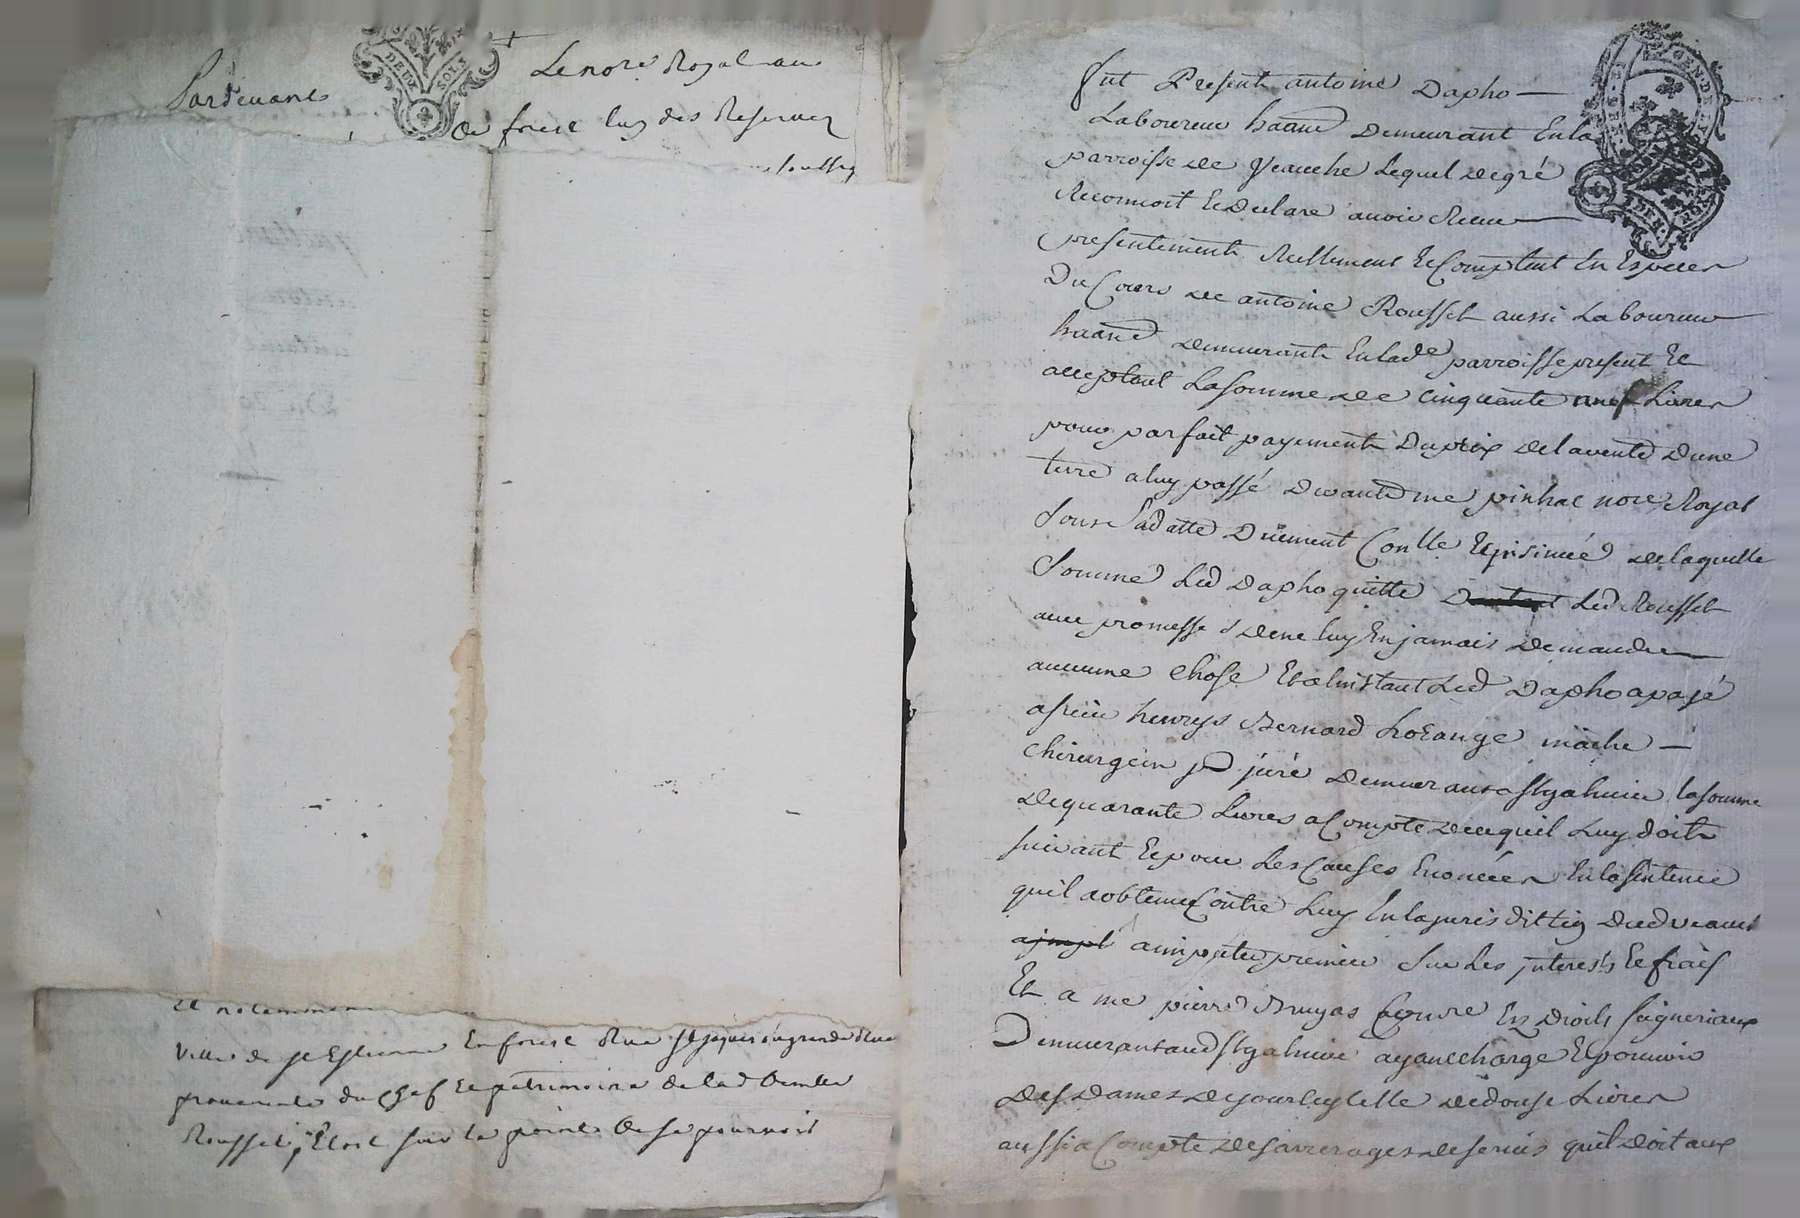 Pardevant Le nore Royal au
DEUX SOLS
de forest luy des Reserver
et notamment
ville de st Estienne En forest Rue st jaques ou grande Rue
provenants du chef Et patrimoine de lad
Rousset, Etoit sur le point de se pourvoir
fut Present antoine Dapho
GEN. DE
Laboureur demeurant En la
parroisse de Veauche Lequel de gré
Reconnoit Et declare avoir Reçeu
presentement Reellement Et Comptant En Especes
Du Cours de antoine Rousset aussi Laboureur
demeurant En lade parroisse present Et
acceptant La somme de cinquante neuf Livres
pour parfait payement Du prix de la vente d'une
terre a luy passé devant me pinhac nore Royal
sous sa datte Duement Conlle Et de laquelle
somme Led Dapho quitte Led Rousset
avec promesse de ne luy En jamais demander
aucune chose Et a linstant Led Dapho a payé
a sieur henrys Bernard Lorange
chirurgein juré demeurant a st galmier la somme
de quarante Livres a Compte de ce quil Luy doit
suivant Et pour Les Causes Enoncées En la sentence
quil a obtenu Contre Luy En la juris dud veauche
a imputer premier sur Les jnterests Et frais
Et a me pierre Bruyas En droits seigneriaux
Demeurant aud st galmier ayant charge Et pouvoir
des dames de jourcey celle de douse Livres
aussi a Compte des arrerages de servis quil doit aux